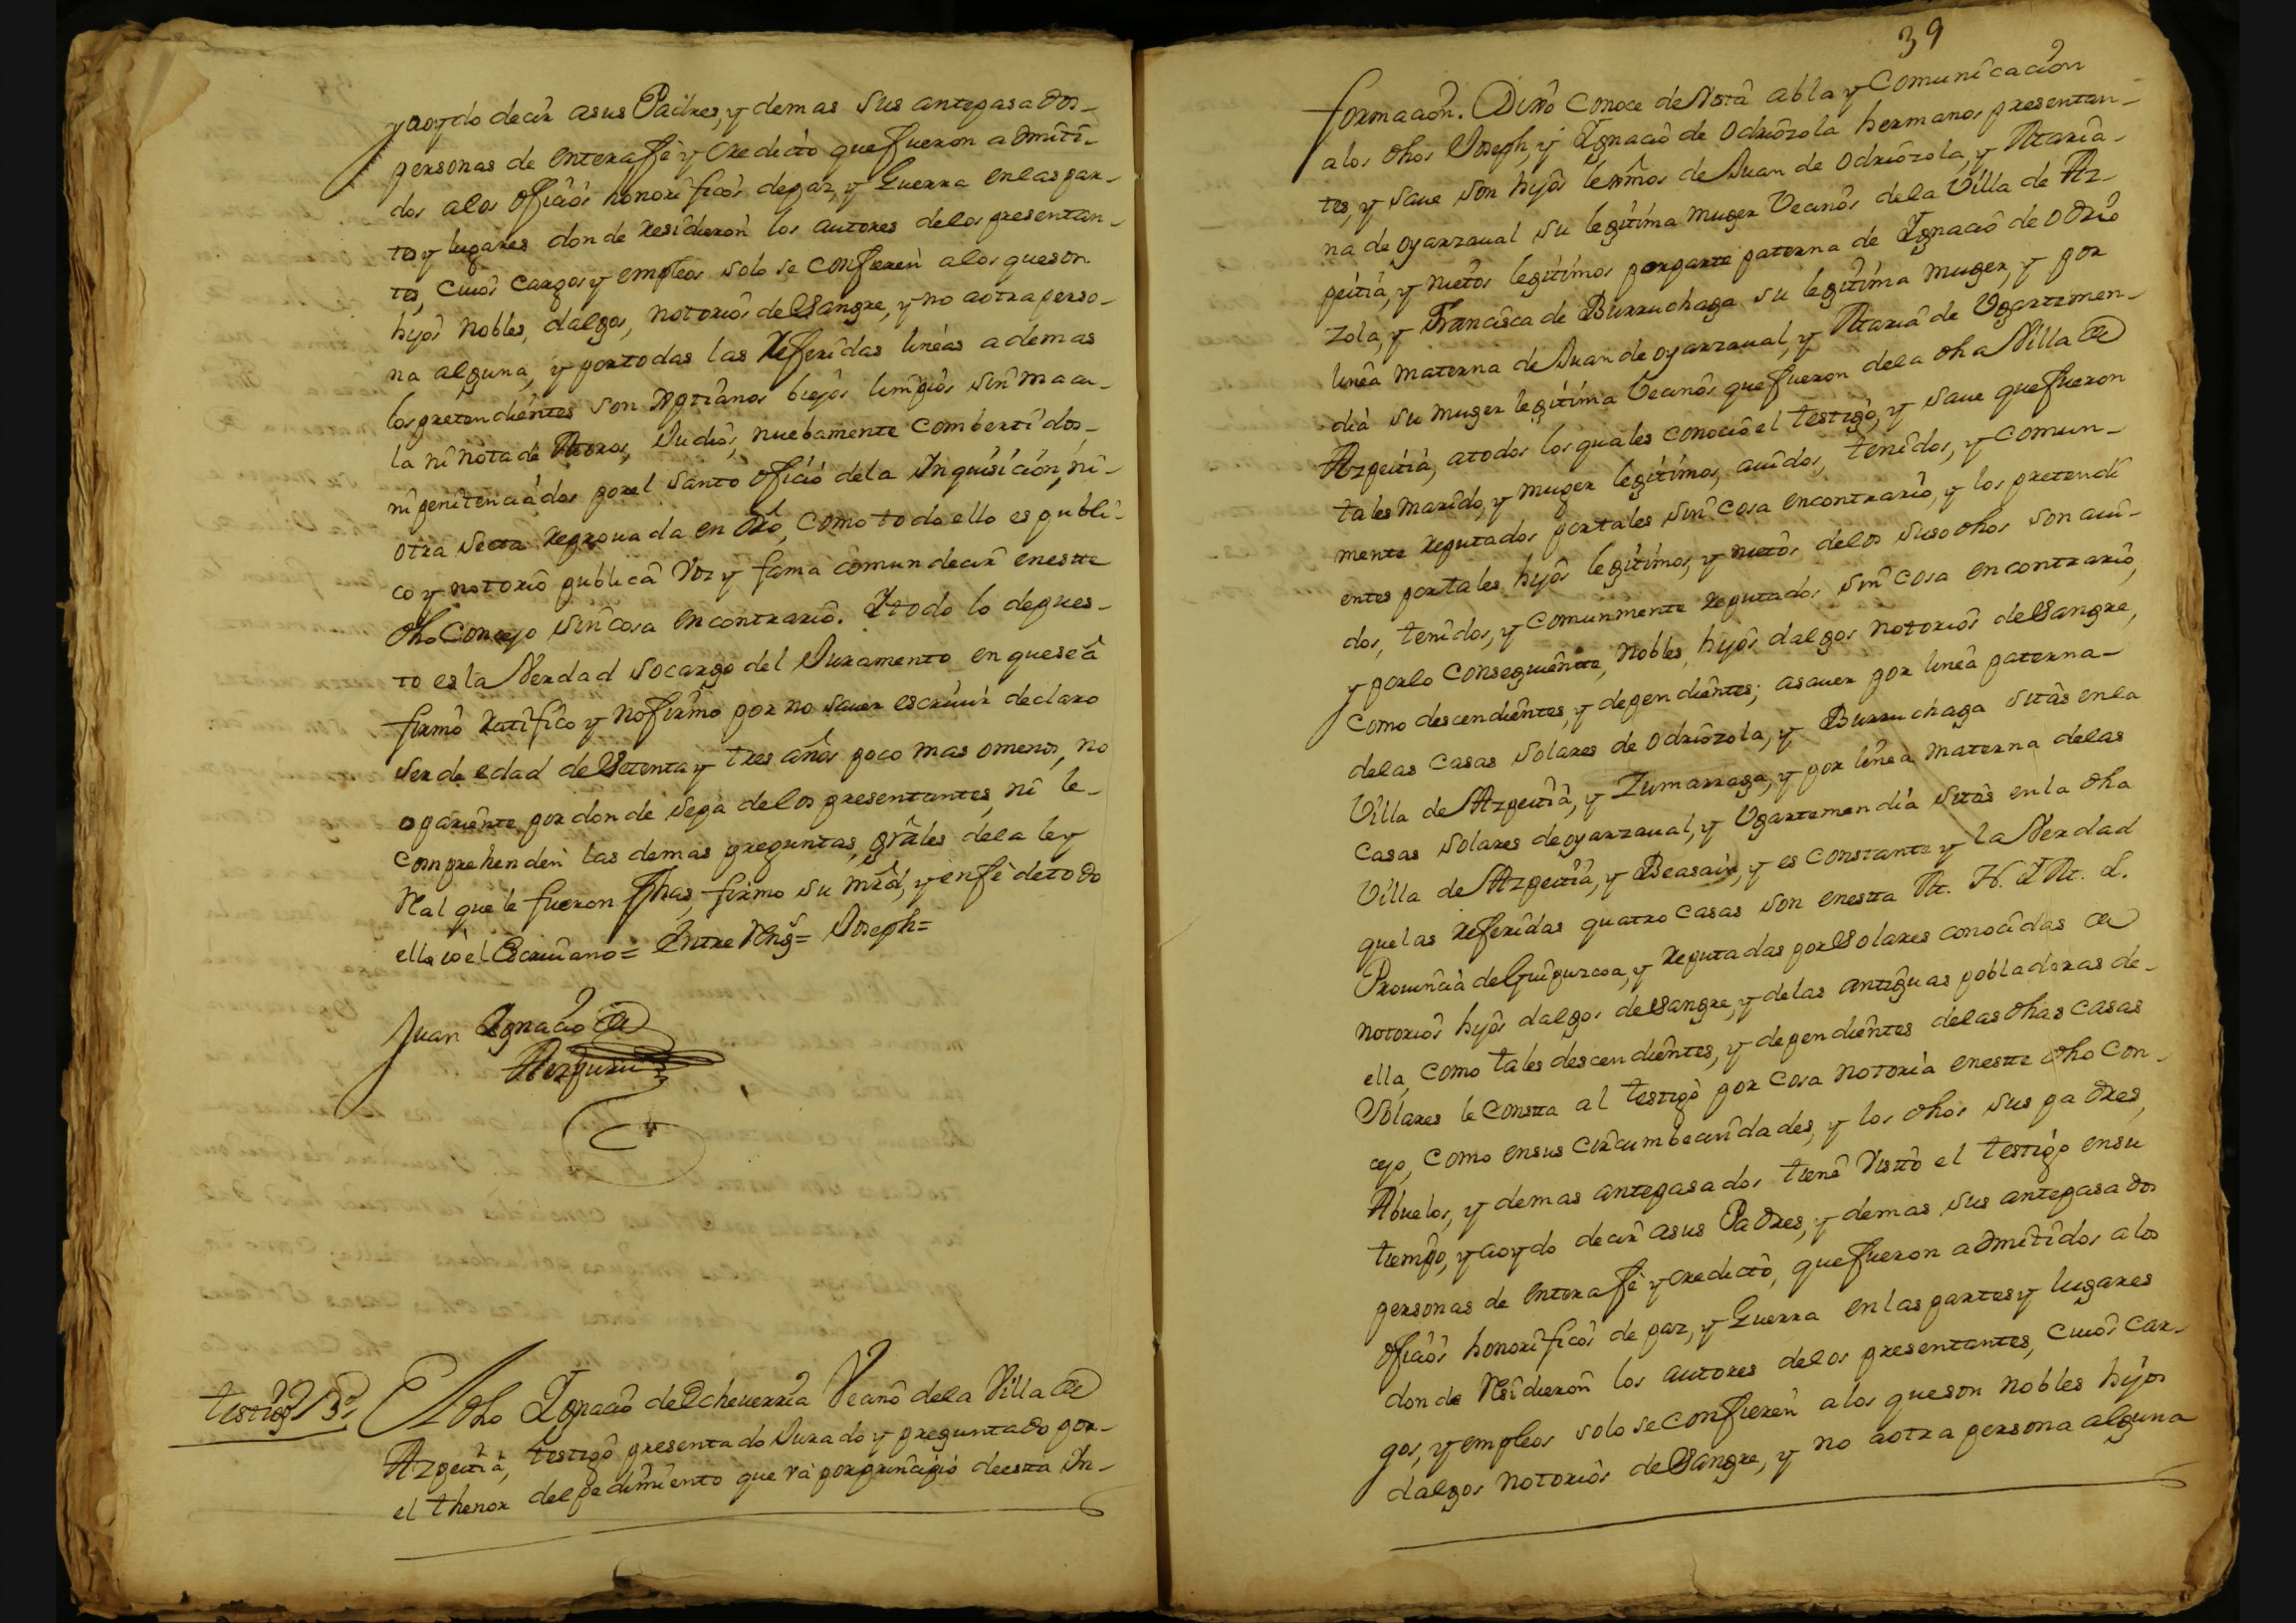 y a oydo decir a sus Padres, y demas sus antepasados
personas de entera fè y credicto que fueron admiti-
dos alos oficios honorificos de paz, y Guerra en las par-
tes y lugares donde residieron los autores delos presentan-
tes, cuios cargos y empleos solo se confieren alos que son
hijos nobles, dalgos, notorios de Sangre, y no a otra perso-
na alguna, y por todas las referidas lineas ademas
los pretendientes son xptianos biejos limpios sin macu-
la ni nota de Moros, Judios, nuebamente combertidos,
ni penitenciados por el Santo oficio dela Inquisicion, ni
otra secta reprouada en dro, como todo ello es publi-
co y notorio publica voz y fama comun decir en este
dho Concejo sin cosa en contrario. Y todo lo depues-
to es la Verdad so cargo del Juramento en que se a
firmò ratifico y no firmo por no sauer escriuir declaro
ser de edad de Setenta y tres años poco mas o menos, no
es pariente por donde sepa delos presentantes, ni le
comprehenden las demas preguntas grãles dela ley
Real que le fueron fhas, firmo su mrd, y en fè de todo
ello io el Escriuano = Entre Rengs = Joseph =
Juan Ignacio de
Aizpuru
testigo 3º El dho Ignacio de Echeuerria Vecino dela Villa de
Azpeitia, testigo presentado Jurado y preguntado por
el thenor del pedimiento que và por principio de esta In-
39
formacion. Dixo conoce de Vista abla y Comunicacion
alos dhos Joseph, y Ignacio de Odriozola hermanos presentan-
tes, y saue son hijos lexmos de Juan de Odriozola, y Maria-
na de oyarzaual su legitima muger Vecinos dela Villa de Az-
peitia, y nietos legitimos por parte paterna de Ignacio de Odrio
zola, y Francisca de Burruchaga su legitima muger, y por
linea materna de Juan de oyarzaual, y Maria de Vgartemen-
dia su muger legitima Vecinos que fueron dela dha Villa de
Azpeitia, a todos los quales conocio el testigo, y saue que fueron
tales marido, y muger legitimos, auidos, tenidos, y comun-
mente reputados por tales sin cosa en contrario, y los pretendi
entes por tales hijos legitimos, y nietos delos susodhos son aui-
dos, tenidos, y comunmente reputados sin cosa en contrario,
y por lo consequiente, nobles, hijos dalgos notorios de Sangre,
como descendientes, y dependientes; a sauer por linea paterna
delas casas solares de Odriozola, y Burruchaga sitas en la
Villa de Azpeitia, y Zumarraga, y por linea materna delas
casas solares de oyarzaual, y Vgartemendia sitas en la dha
Villa de Azpeitia, y Beasain, y es constante y la Verdad
que las referidas quatro casas son en esta M. N. I M. L.
Prouincia de Guipuzcoa, y reputadas por Solares conocidas de
notorios hijos dalgos de Sangre, y delas antiguas pobladoras de
ella, como tales descendientes, y dependientes delas dhas casas
Solares le consta al testigo por cosa notoria en este dho Con-
cejo, como en sus circumbecindades, y los dhos sus padres,
Abuelos, y demas antepasados tiene visto el testigo en su
tiempo, y a oydo decir a sus Padres, y demas sus antepasados
personas de entera fè y credicto, que fueron admitidos alos
oficios honorificos de paz, y Guerra en las partes y lugares
donde Residieron los autores delos presentantes, cuios car-
gos, y empleos solo se confieren alos que son nobles hijos
dalgos notorios de Sangre, y no a otra persona alguna